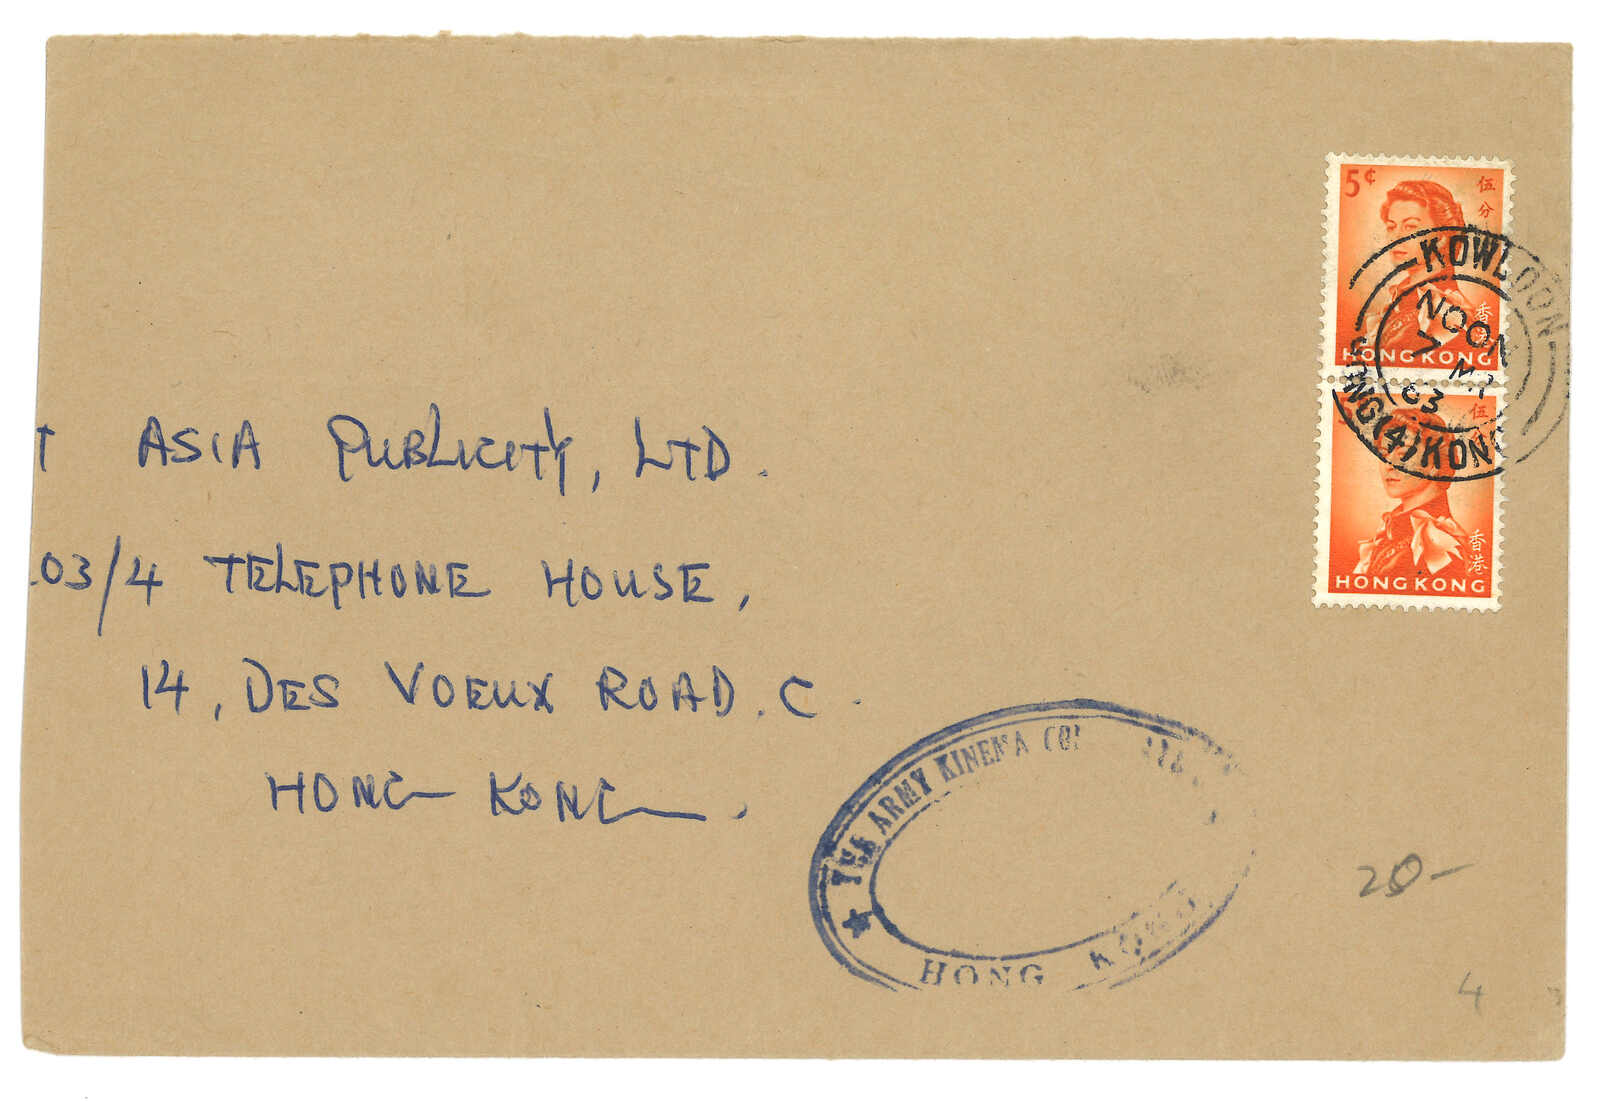 5¢ 伍分
香港
HONG KONG
KOWLOON
NOON
7
63
HONG (4) KONG
伍
香港
HONG KONG
T ASIA PUBLICITY, LTD.
03/4 TELEPHONE HOUSE,
14, DES VOEUX ROAD. C.
HONG KONG.
★ THE ARMY KINEMA
HONG KONG
20-
4